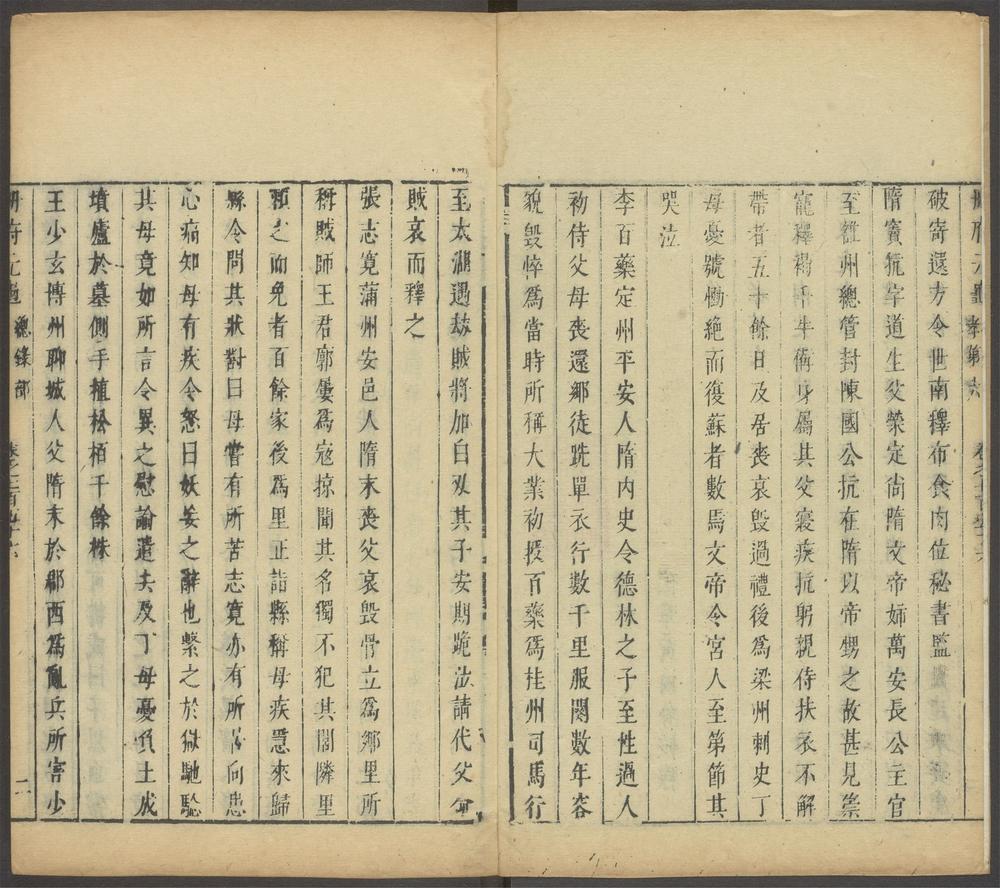 孝第六
破寄還方令世南釋布食肉位秘書監
隋竇抗字道生父榮定尚隋文帝姊萬安長公主官
至雒州總管封陳國公抗在隋以帝甥之故甚見崇
寵釋褐千牛備身屬其父寢疾抗躬親侍扶衣不解
帶者五十餘日及居喪哀毀過禮後爲梁州刺史丁
母憂號慟絶而復蘇者數焉文帝令宮人至第節其
哭泣
李百藥定州平安人隋内史令德林之子至性過人
初侍父母喪還鄉徒跣單衣行數千里服闋數年容
貌毀悴爲當時所稱大業初授百藥爲桂州司馬行
至太湖遇劫賊將加白刃其子安期跪泣請代父命
賊哀而釋之
張志寬蒲州安邑人隋末喪父哀毀骨立爲鄉里所
稱賊師王君廓屢爲寇掠聞其名獨不犯其閭隣里
頼之而免者百餘家後爲里正詣縣稱母疾急來歸
縣令問其狀對曰母嘗有所苦志寬亦有所苦向患
心痛知母有疾令怒曰妖妄之辭也繫之於獄馳驗
其母竟如所言令異之慰諭遣去及丁母憂負土成
墳廬於墓側手植松栢千餘株
王少玄博州聊城人父隋末於郡西爲亂兵所害少
册府元龜 總錄部 二